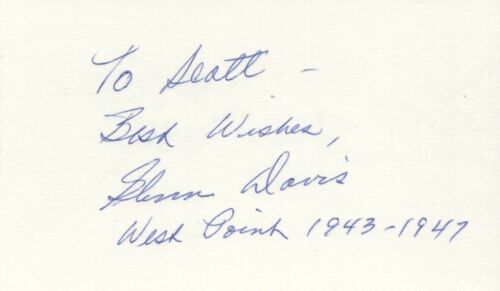 To Scott -
Best Wishes,
Glenn Davis
West Point 1943-1947